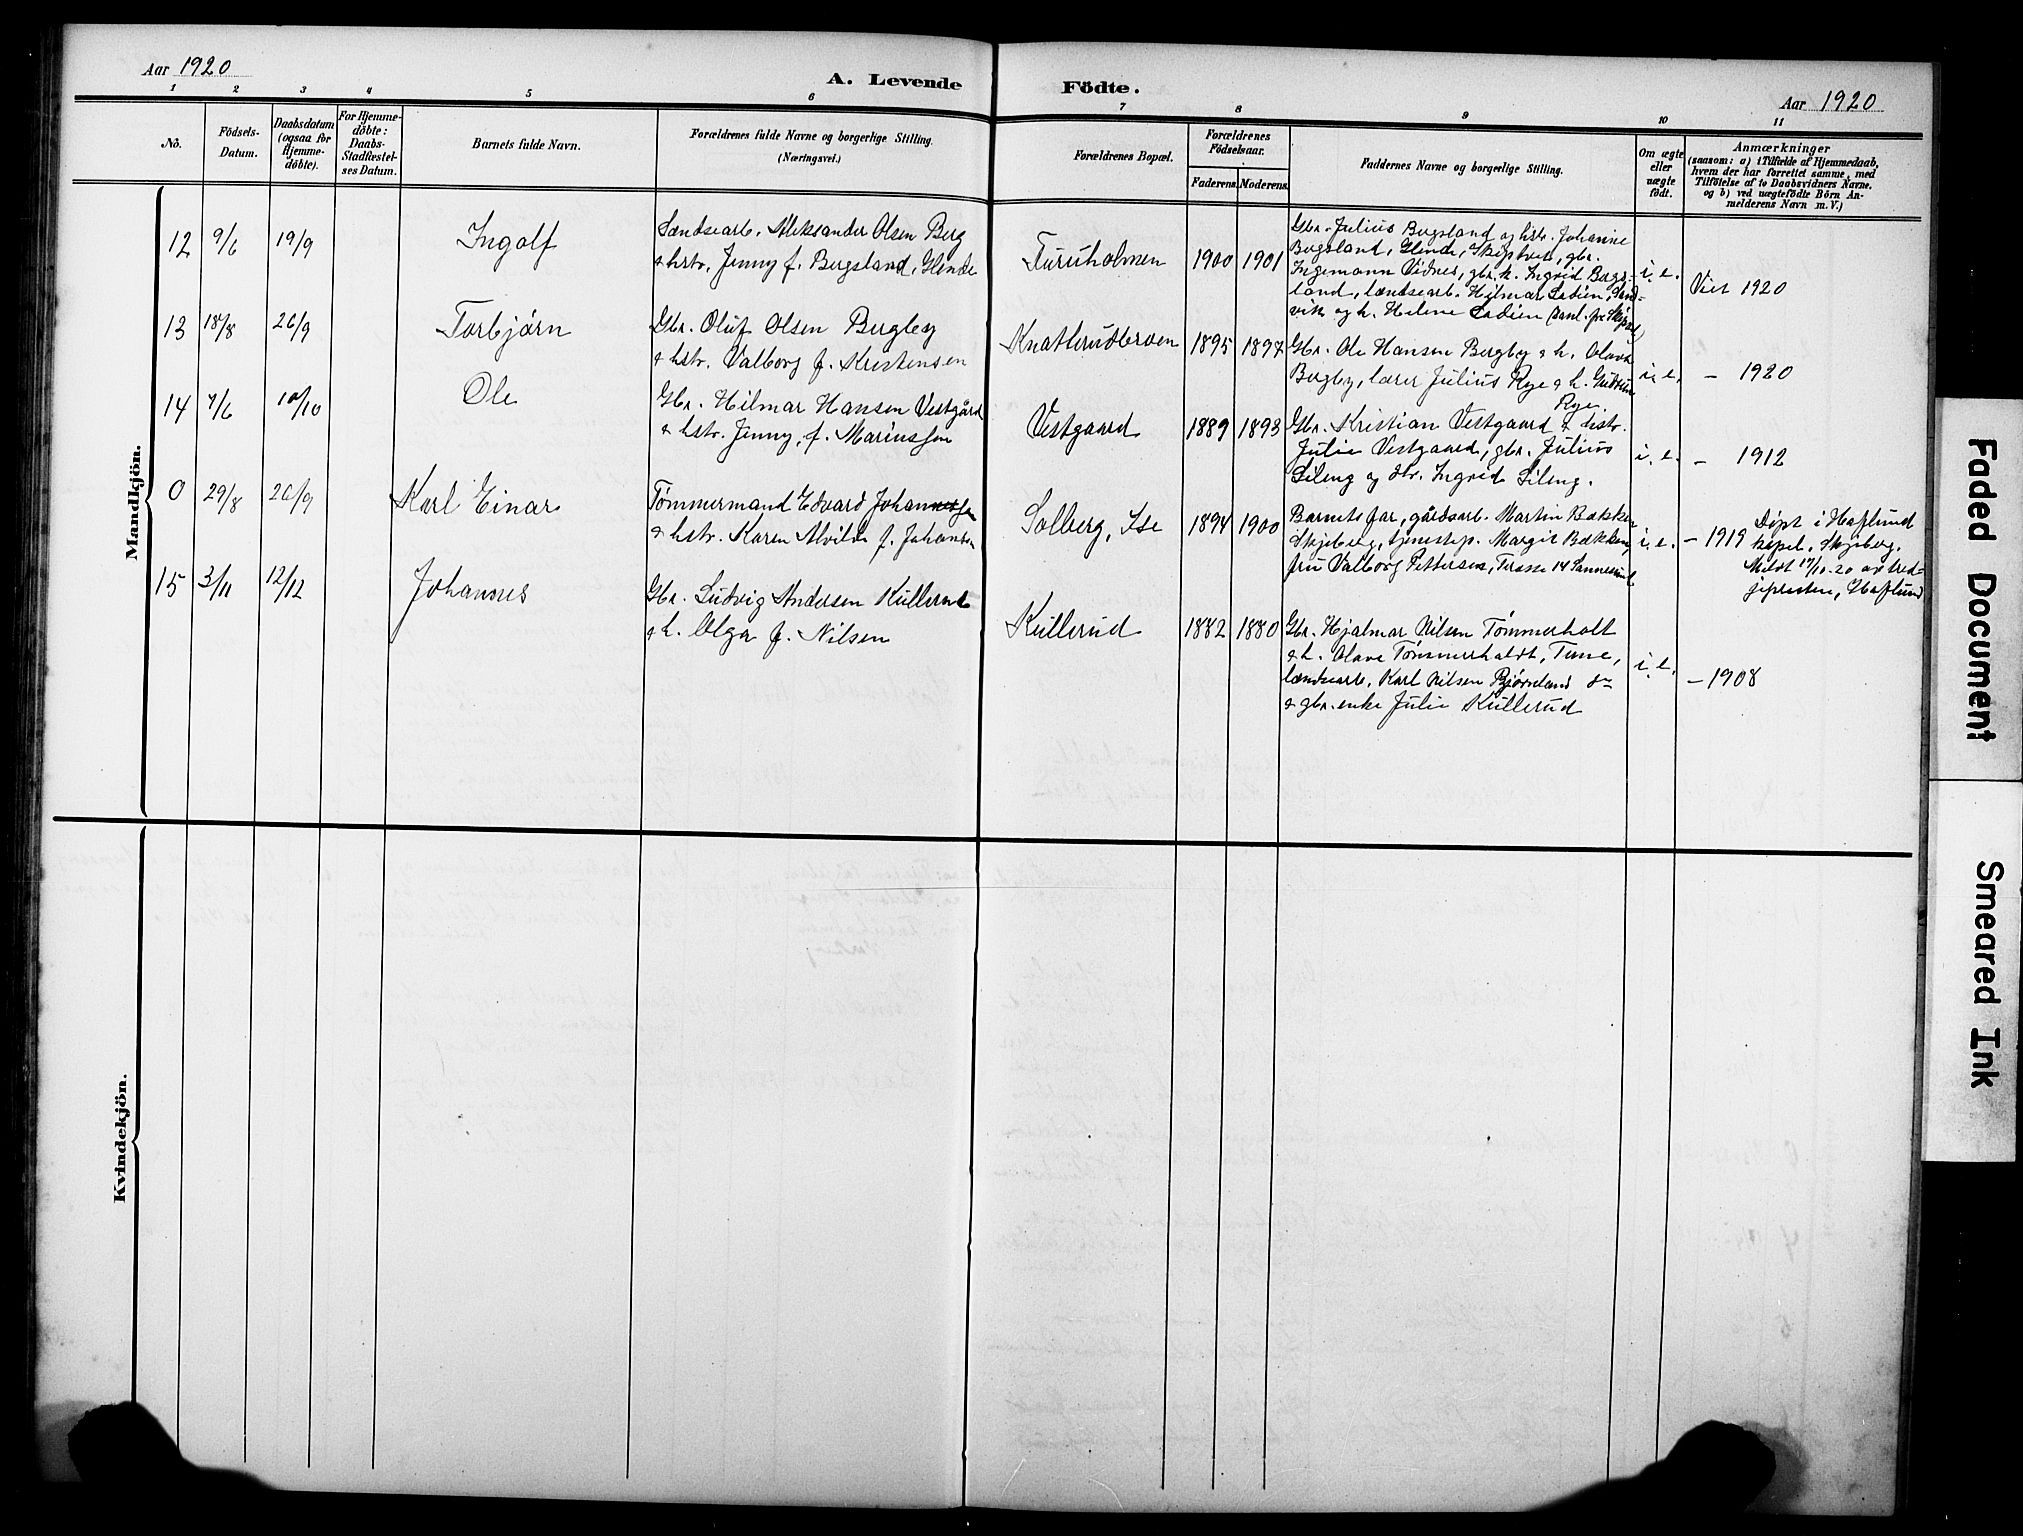 Aar 1920
A. Levende Födte.
Aar 1920
1 2 3 4 5 6 7 8 9 10 11
No.
Födsels-Datum.
Daabsdatum (ogsaa for Hjemme-döbte).
For Hjemme-döbte: Daabs-Stadfæstel-ses Datum.
Barnets fulde Navn.
Forældrenes fulde Navne og borgerlige Stilling. (Næringsvei.)
Forældrenes Bopæl.
Forældrenes Födselsaar.
Faderens. Moderens.
Faddernes Navne og borgerlige Stilling.
Om ægte eller uægte födt.
Anmærkninger
(saasom: a) i Tilfælde af Hjemmedaab, hvem der har forrettet samme, med Tilföielse af to Daabsvidners Navne, og b) ved uægtefödte Börn An-melderens Navn m. V.)
Mandkjön.
12 9/6 19/9 Ingolf
Lændsearb. Aleksander Olsen Berg
& hstr. Jenny f. Bergsland, Glende
Furuholmen 1900 1901
Gbr. Julius Bergsland og hstr. Johanne
Bergsland, Glende, Skiptvet, gbr.
Ingemann Vidnes, gbr.k. Ingrid Bergs-
land, lændsearb. Hilmar Ladien, Sand-
vik og h. Helene Ladien
i. e. Viet 1920
13 18/8 26/9 Torbjørn
Gbr. Oluf Olsen Bergby
& hstr. Valborg f. Kristensen
Knatterudbroen 1895 1897
Gbr. Ole Hansen Bergby & h. Olava
Bergby, lærer Julius Rye & h. Gudrun
Rye
i. e. – 1920
14 7/6 10/10 Ole
Gbr. Hilmar Hansen Vestgård
& hstr. Jenny, f. Mariussen
Vestgaard 1889 1893
Gbr. Kristian Vestgaard & hstr.
Julie Vestgaard, gbr. Julius
Lileng og Ingrid Lileng.
i. e. – 1912
0 29/8 26/9 Karl Einar
Tømmermand Edvard Johannessen
& hstr. Karen Alvilde f. Johansen
Solberg, Ise 1894 1900
Barnets far, gårdsarb. Martin Bækken
Skjeberg, tjenestep. Margit Bækken,
fru Valborg Pettersen, Terasse 14 Sannesund
i. e. – 1919 Døpt i Hafslund
kapel, Skjeberg.
Meldt 17/10-20 av sted-
spresten, Hafslund
15 3/11 12/12 Johannes
Gbr. Ludvig Andersen Kullerud
& h. Olga f. Nilsen
Kullerud 1882 1880
Gbr. Hjalmar Nilsen Tømmerholt
& h. Olave Tømmerholdt, Tune,
lændsearb. Karl Nilsen Bjørneland
& gbr.enke Julie Kullerud
i. e. – 1908
Kvindekjön.
Faded Document
Smeared Ink